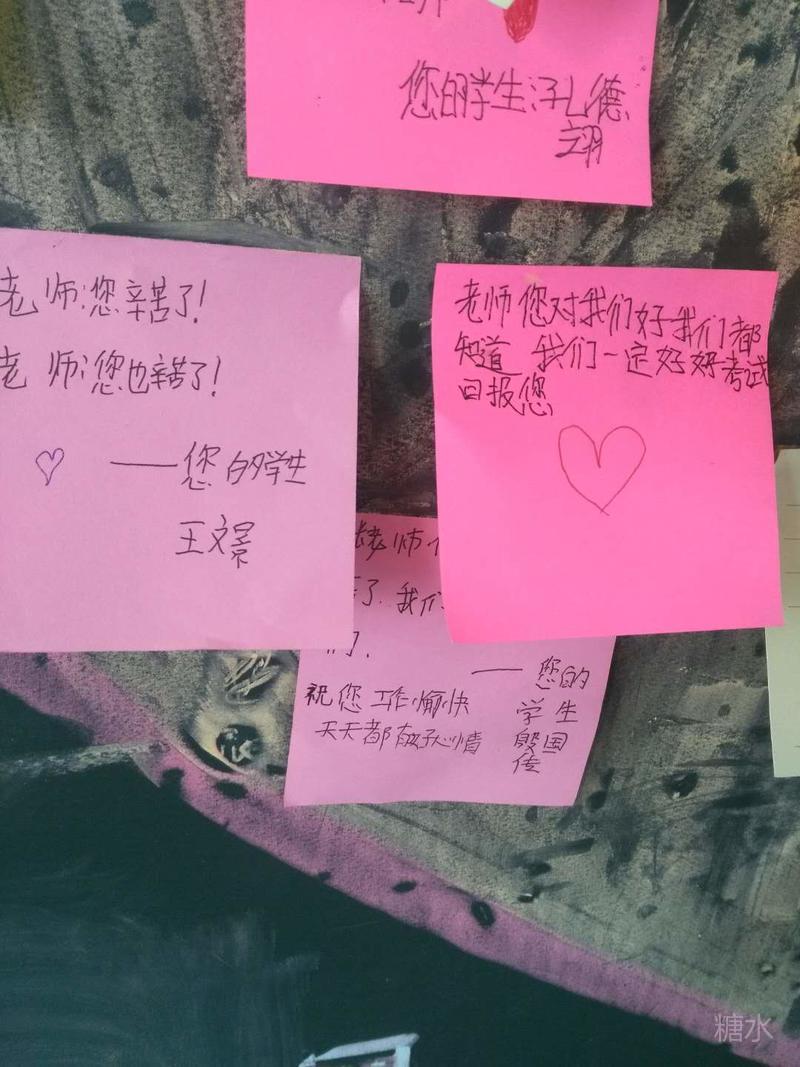 您的学生:孔德
翊
老师:您辛苦了!
老师:您也辛苦了!
——您的学生
王文景
老师您对我们好我们都
知道 我们一定好好考试
回报您
老师
了.我们
们.
——您的
学生
殷国
传
祝您工作愉快
天天都有好心情
糖水